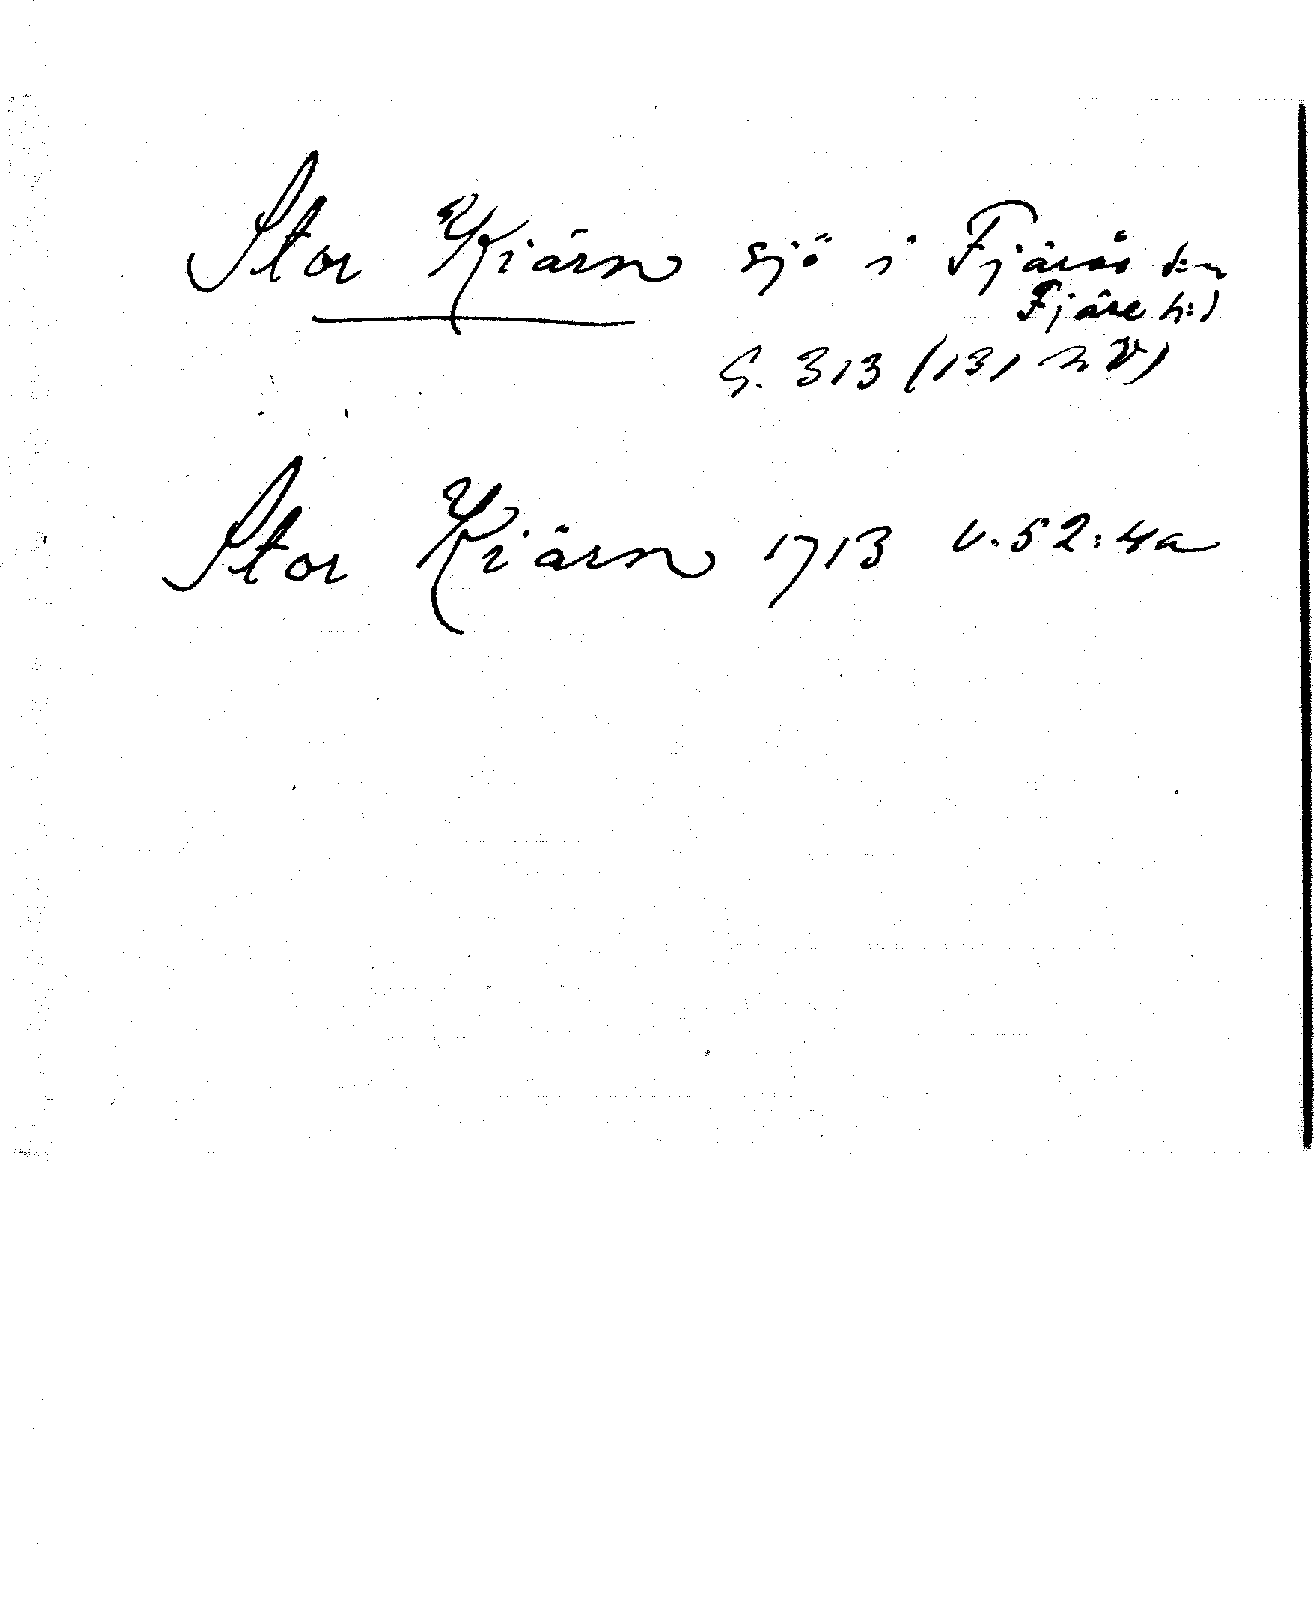 Stor Kiärn sjö i Fjärås s:n
Fjäre h:d
G. 313 (131 n V)
Stor Kiärn 1713 v. 52:4a